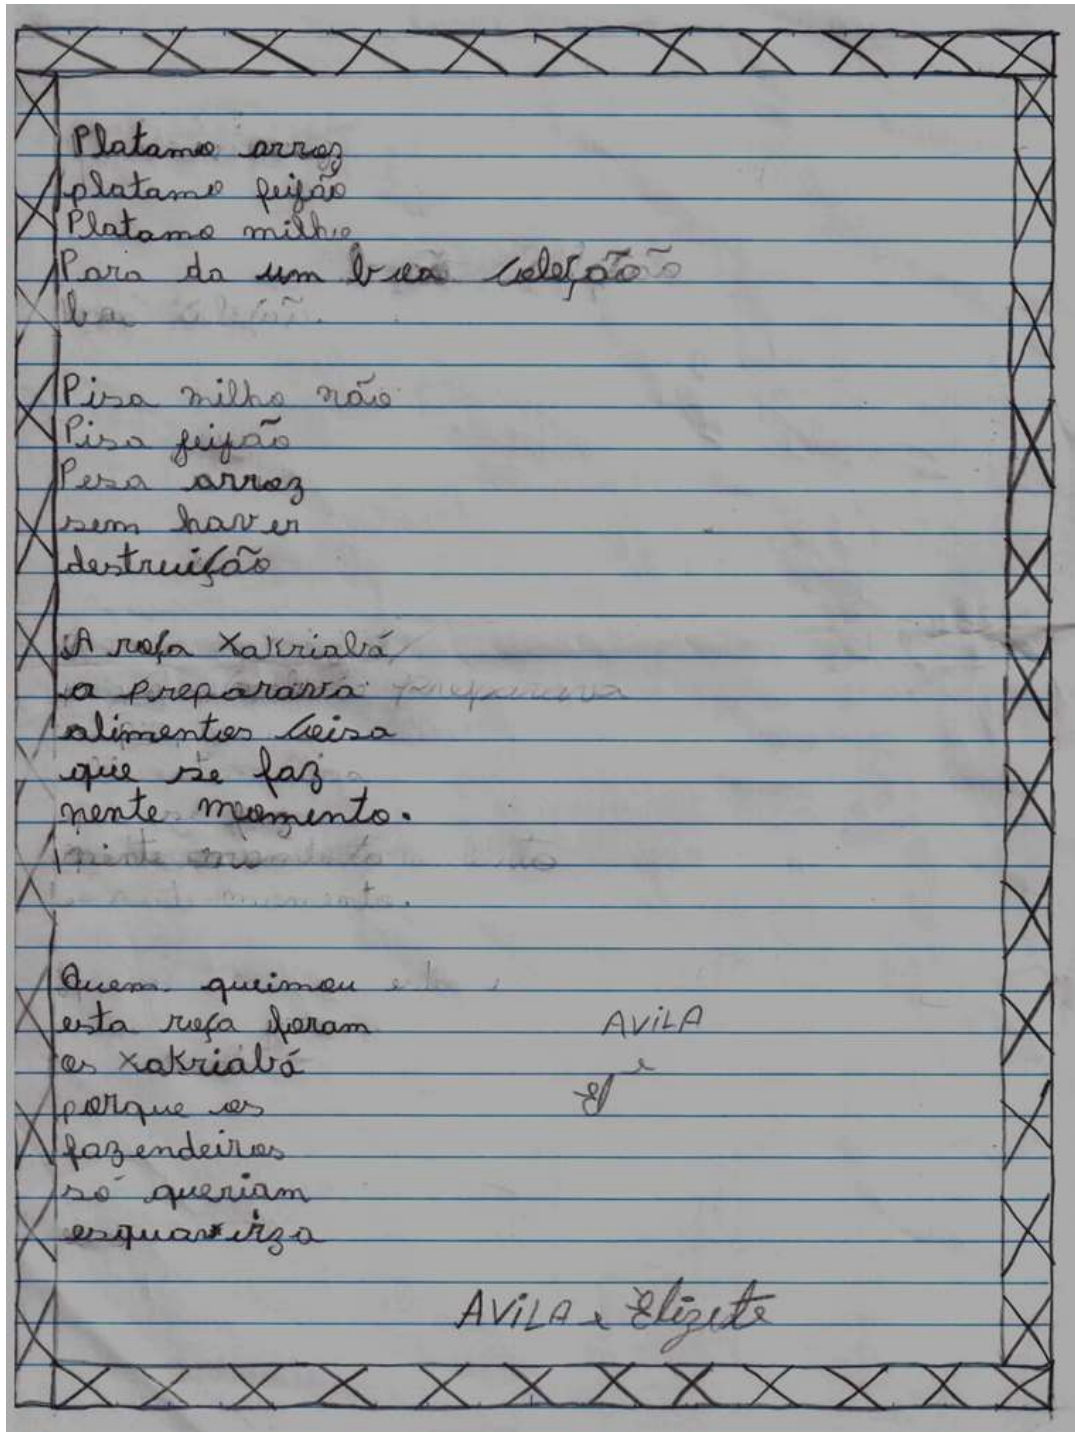 Platamo arroz
platamo feijão
Platamo milho
Para da um boa coleção
boa coleção.
Pisa milho não
Pisa feijão
Pesa arroz
sem haver
destruição
A roça Xakriabá
a preparava preparava
alimentos coisa
que se faz
nente momento.
nente momento
nente momento.
Quem queimou esta
esta roça foram
os xakriabá
porque os
fazendeiros
só queriam
esquavirza
AVILA
e
El
AVILA e Elizete